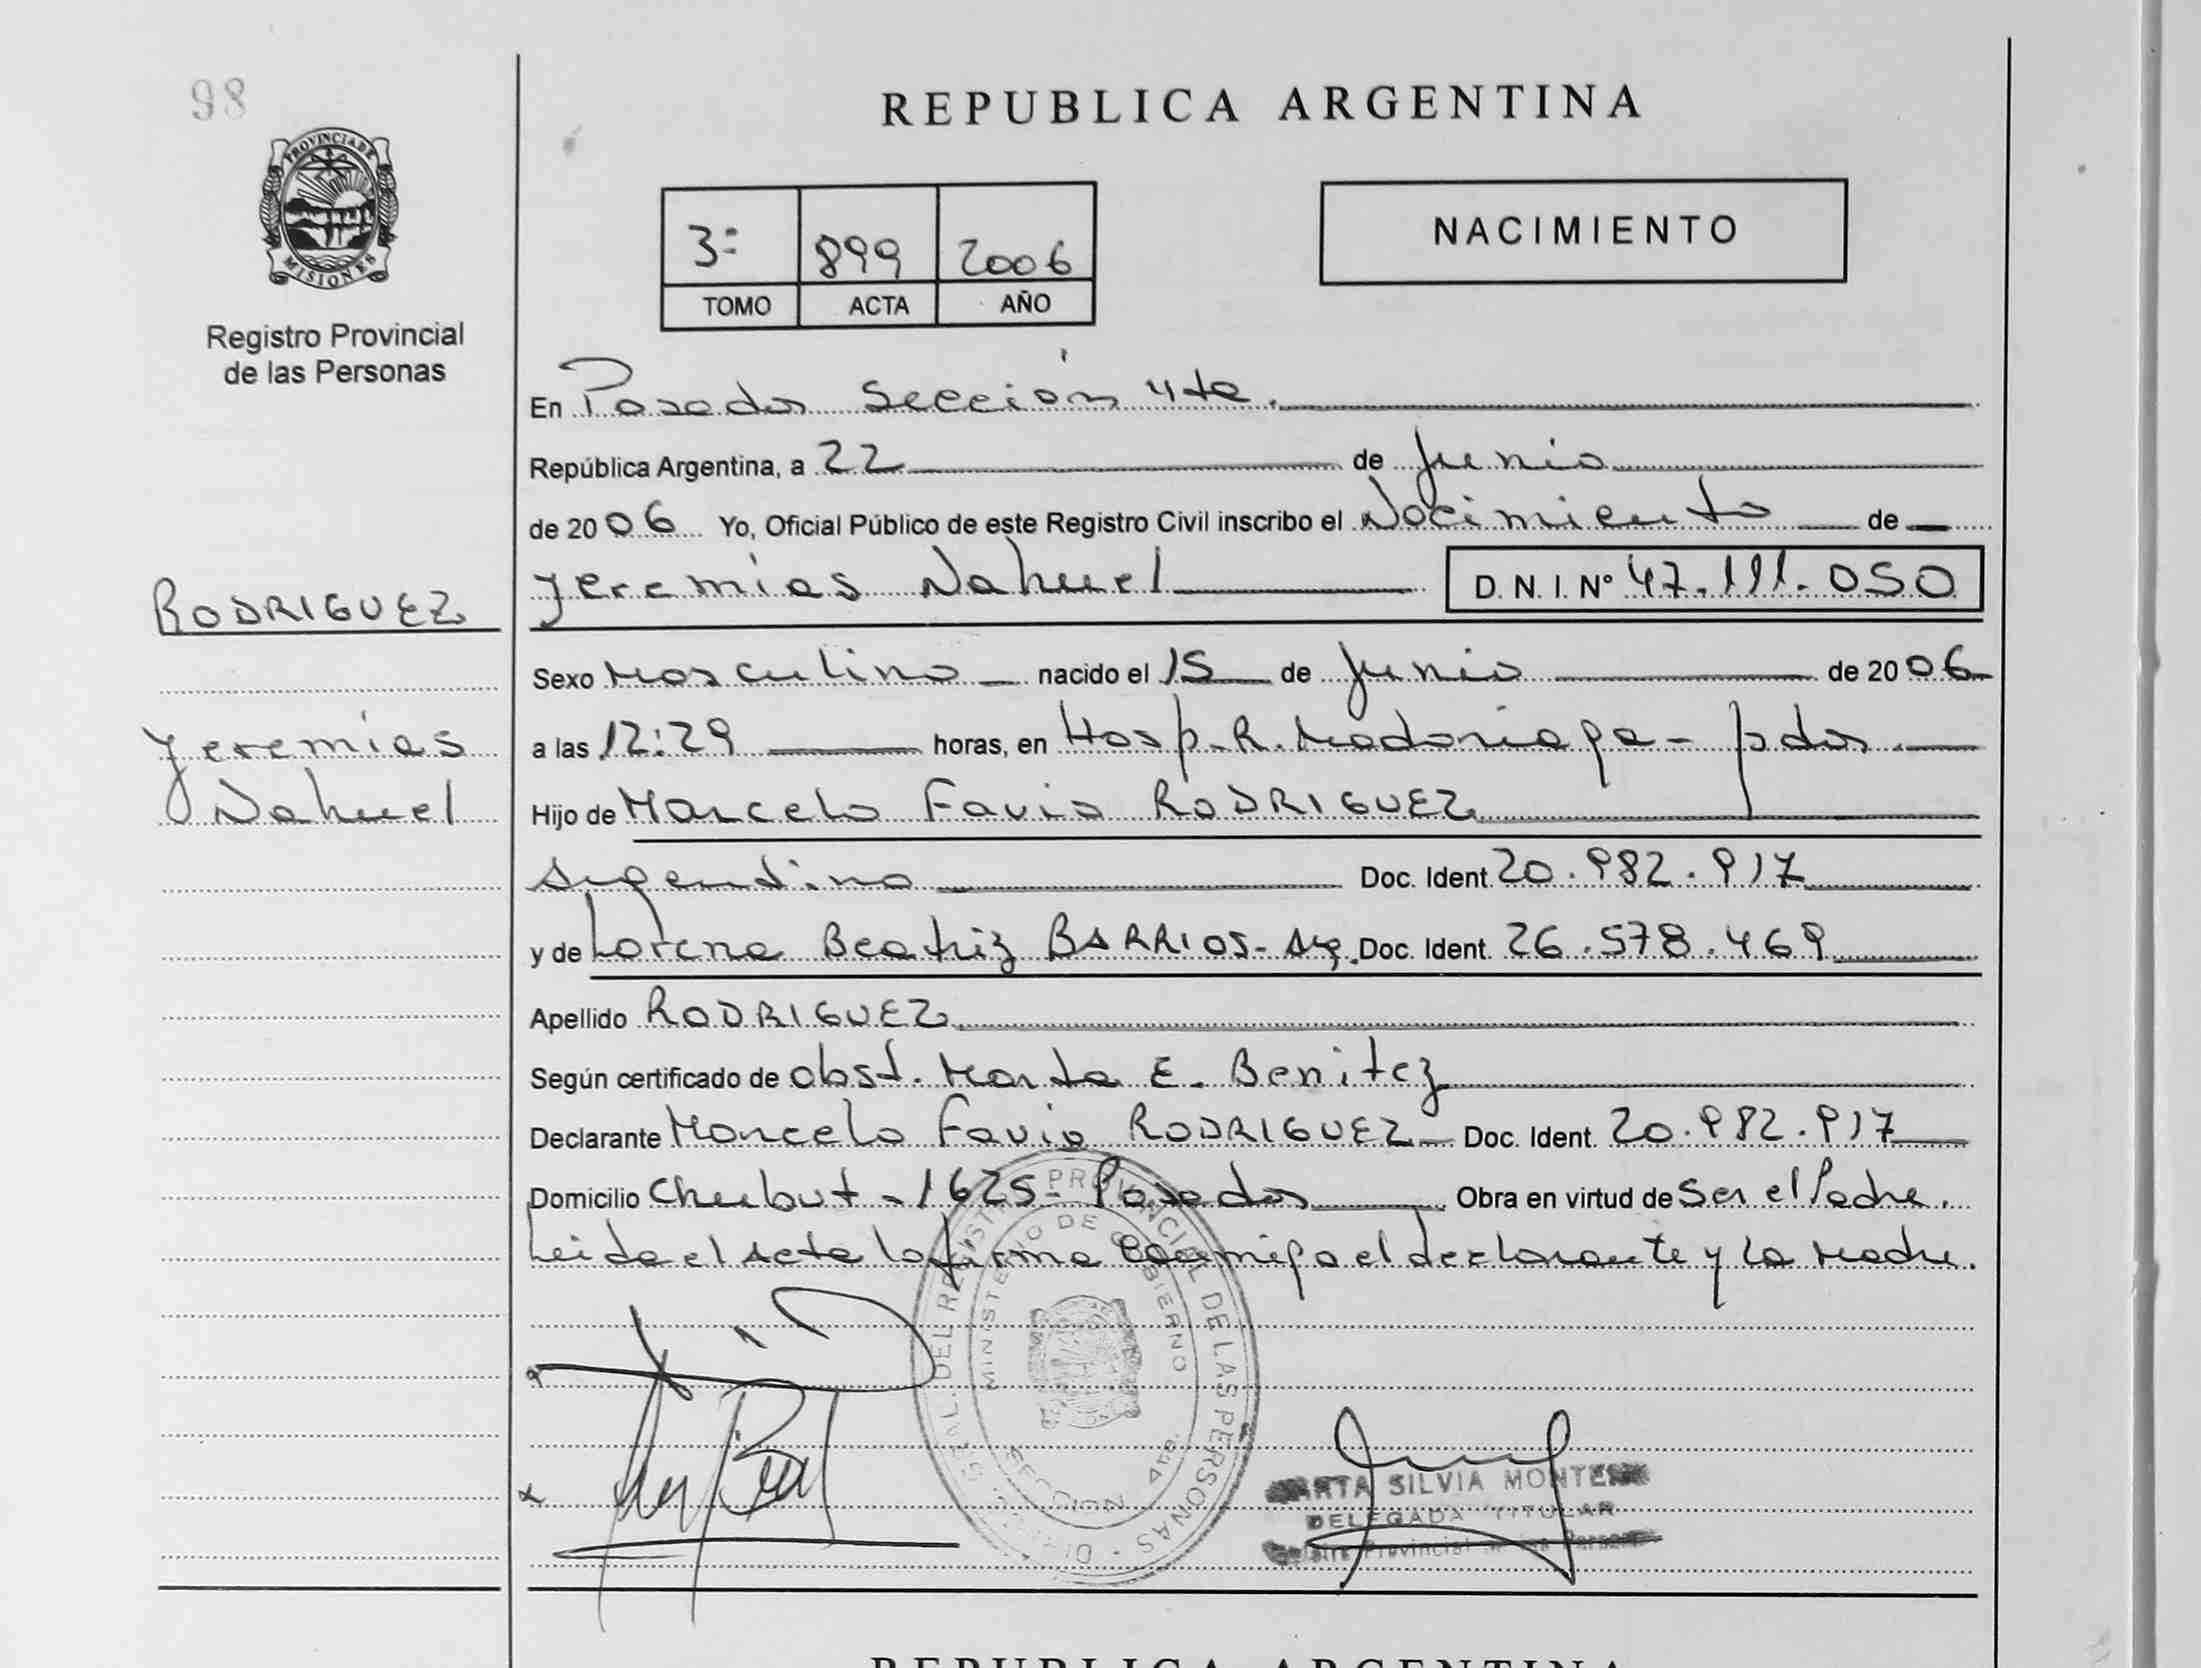 98
PROVINCIA DE
MISIONES
Registro Provincial
de las Personas
REPUBLICA ARGENTINA
3º 899 2006
TOMO ACTA AÑO
NACIMIENTO
En Posadas Sección 4ta.
República Argentina, a 22 de Junio
de 2006 Yo, Oficial Público de este Registro Civil inscribo el Nacimiento de
Jeremías Nahuel D. N. I. Nº 47.111.050
RODRIGUEZ
Jeremías
Nahuel
Sexo Masculino nacido el 15 de Junio de 2006
a las 12:29 horas, en Hosp. R. Madariaga - pdas.
Hijo de Marcelo Favio RODRIGUEZ
Argentino Doc. Ident. 20.982.917
y de Lorena Beatriz BARRIOS - Arg. Doc. Ident. 26.578.469
Apellido RODRIGUEZ
Según certificado de obst. Marta E. Benitez
Declarante Marcelo Favio RODRIGUEZ Doc. Ident. 20.982.917
Domicilio Chubut - 1625 - Posadas Obra en virtud de ser el Padre.
Leida el Acta la firma conmigo el declarante y la Madre.
DEL REGISTRO PROVINCIAL DE LAS PERSONAS
MINISTERIO DE GOBIERNO
SECCION 4ta.
SILVIA
DELEGADA TITULAR
Provincial
REPUBLICA ARGENTINA